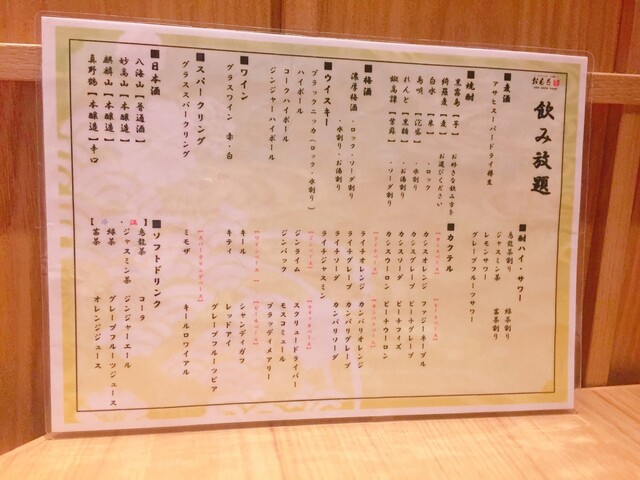 飲み放題
■麦酒
アサヒスーパードライ樽生
■焼酎
黒霧島【芋】
綾羅麦【麦】
白水【米】
島唄【泡盛】
れんと【黒糖】
椒高譚【紫蘇】
お好きな飲み方を
お選びください
・ロック
・水割り
・お湯割り
・ソーダ割り
■梅酒
濃厚梅酒・ロック・ソーダ割り
・水割り・お湯割り
■ウイスキー
ブラックニッカ(ロック・水割り)
ハイボール
コークハイボール
ジンジャーハイボール
■ワイン
グラスワイン 赤・白
■スパークリング
グラススパークリング
■日本酒
八海山【普通酒】
妙高山【本醸造】
麒麟山【本醸造】
真野鶴【本醸造】辛口
■酎ハイ・サワー
烏龍茶割り
ジャスミン茶
レモンサワー
グレープフルーツサワー
緑茶割り
蕎茶割り
■カクテル
カシスオレンジ
カシスグレープ
カシスソーダ
カシスウーロン
ファジーネーブル
ピーチグレープ
ピーチフィズ
ピーチウーロン
ライチオレンジ
ライチグレープ
ライチソーダ
ライチジャスミン
カンパリオレンジ
カンパリグレープ
カンパリソーダ
ジンライム
ジンバック
スクリュードライバー
モスコミュール
ブラッディメアリー
キール
キティ
シャンディガフ
レッドアイ
グレープフルーツビア
ミモザ
キールロワイアル
■ソフトドリンク
【冷・温】
烏龍茶
ジャスミン茶
緑茶
蕎茶
コーラ
ジンジャーエール
グレープフルーツジュース
オレンジジュース